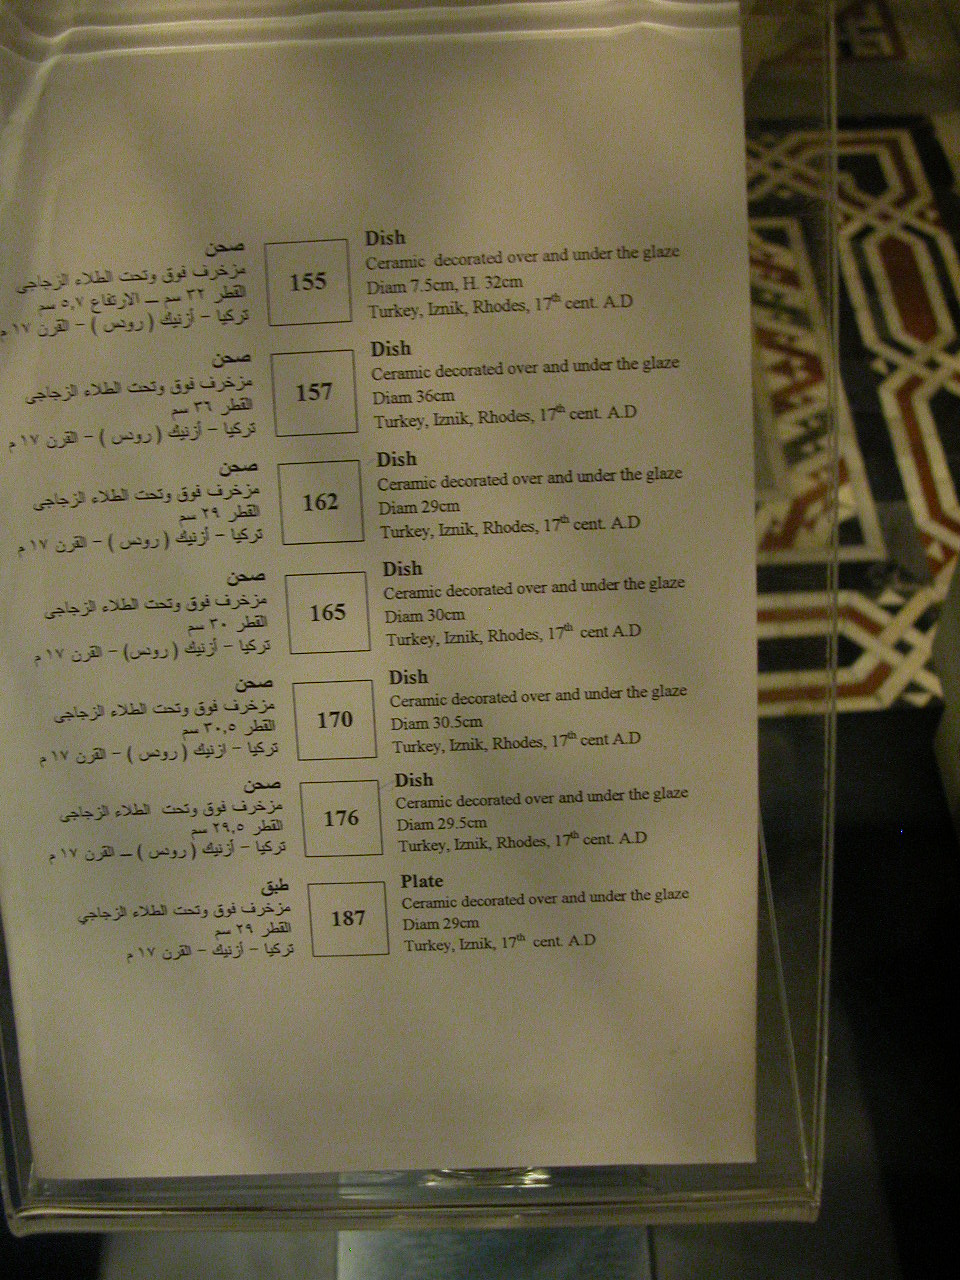 صحن
مزخرف فوق وتحت الطلاء الزجاجى
القطر ٣٢ سم ــ الارتفاع ٥,٧ سم
تركيا – أزنيك ( رودس ) – القرن ١٧ م
155
Dish
Ceramic decorated over and under the glaze
Diam 7.5cm, H. 32cm
Turkey, Iznik, Rhodes, 17th cent. A.D
صحن
مزخرف فوق وتحت الطلاء الزجاجى
القطر ٣٦ سم
تركيا – أزنيك ( رودس ) – القرن ١٧ م
157
Dish
Ceramic decorated over and under the glaze
Diam 36cm
Turkey, Iznik, Rhodes, 17th cent. A.D
صحن
مزخرف فوق وتحت الطلاء الزجاجى
القطر ٢٩ سم
تركيا – أزنيك ( رودس ) – القرن ١٧ م
162
Dish
Ceramic decorated over and under the glaze
Diam 29cm
Turkey, Iznik, Rhodes, 17th cent. A.D
صحن
مزخرف فوق وتحت الطلاء الزجاجى
القطر ٣٠ سم
تركيا – أزنيك ( رودس) – القرن ١٧ م
165
Dish
Ceramic decorated over and under the glaze
Diam 30cm
Turkey, Iznik, Rhodes, 17th cent A.D
صحن
مزخرف فوق وتحت الطلاء الزجاجى
القطر ٣٠,٥ سم
تركيا – ازنيك ( رودس ) – القرن ١٧ م
170
Dish
Ceramic decorated over and under the glaze
Diam 30.5cm
Turkey, Iznik, Rhodes, 17th cent A.D
صحن
مزخرف فوق وتحت الطلاء الزجاجى
القطر ٢٩,٥ سم
تركيا – أزنيك ( رودس ) ــ القرن ١٧ م
176
Dish
Ceramic decorated over and under the glaze
Diam 29.5cm
Turkey, Iznik, Rhodes, 17th cent. A.D
طبق
مزخرف فوق وتحت الطلاء الزجاجي
القطر ٢٩ سم
تركيا – أزنيك – القرن ١٧ م
187
Plate
Ceramic decorated over and under the glaze
Diam 29cm
Turkey, Iznik, 17th cent. A.D